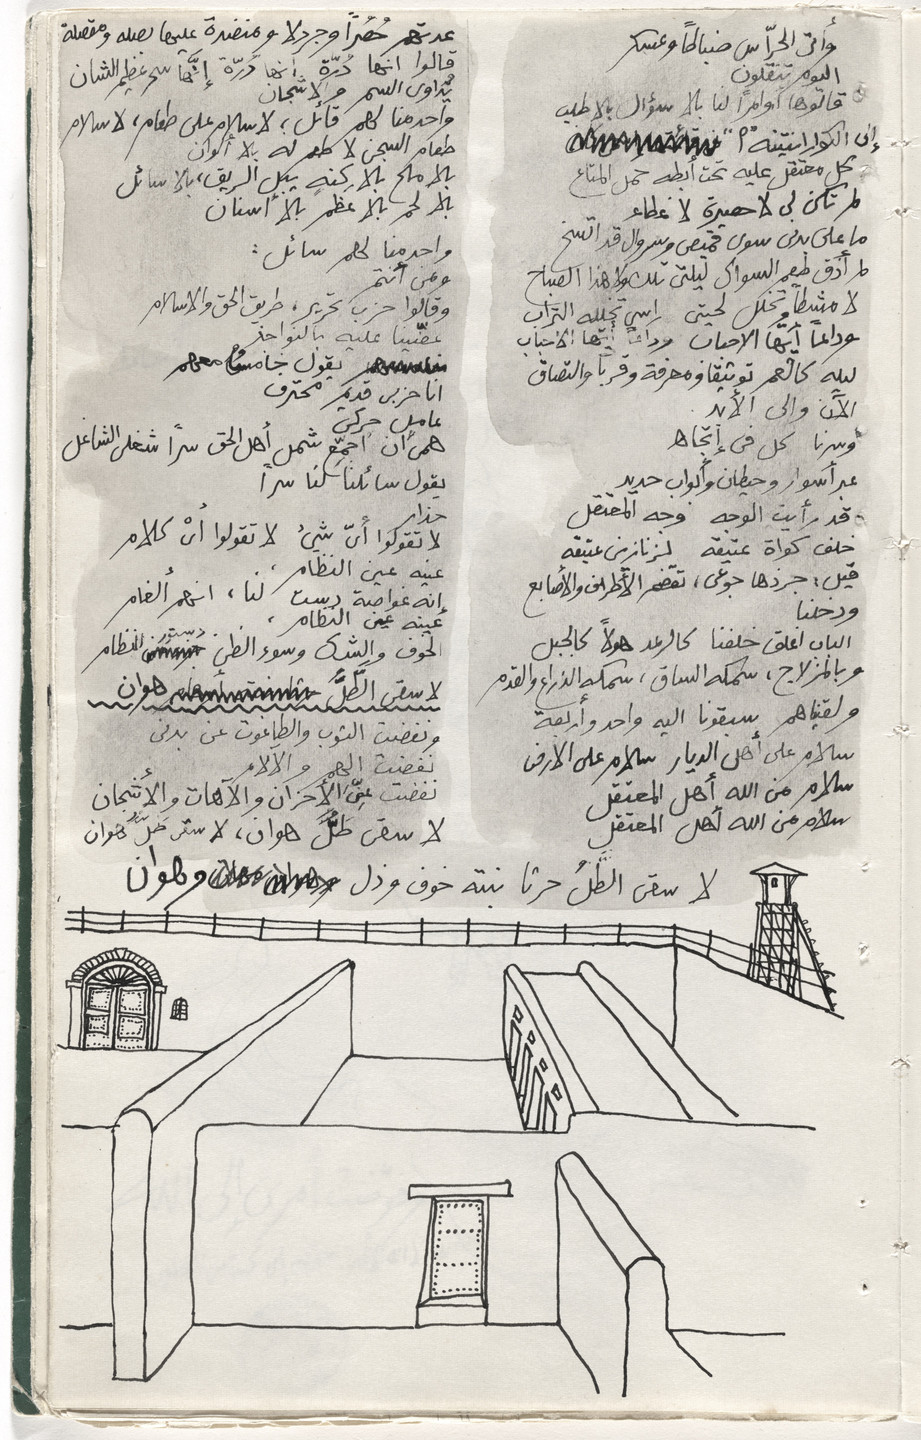 وأتى الحرّاس ضباطاً وعسكر
اليوم تنقلون
قالوها أوامراً لنا بلا سؤال بلا طلب
إلى الكرانتينه
كل معتقل عليه تحت أبطه حمل المتاع
لم تكن لي لا حصيرة لا غطاء
ما على بدني سوى قميص وسروال قد اتسخ
لم أذق طعم السواك ليلتي تلك ولا هذا الصباح
لا مشطاً تخلل لحيتي راسي تخلله التراب
وداعاً أيّها الاحباب وداعاً أيّها الاحباب
ليله كالعمر توثيقا ومعرفة وقرباً والتصاق
الآن والى الأبد
وسرنا كل في إتجاه
عبر أسوار وحيطان وأبواب حديد
قد رأيت الوجه وجه المعتقل
خلف كواة عتيقة لزنازين عتيقه
قيل: جرذها جوعى، تقضم الأطراف والأصابع
ودخلنا
الباب اغلق خلفنا كالرعد هولاً كالجبل
وبالمزلاج، سمكه الساق، سمكه الذراع والقدم
ولقيناهم سبقونا اليه واحد وأربعة
سلام على أهل الديار سلام على الارض
سلام من الله أهل المعتقل
سلام من الله أهل المعتقل
عدتهم حُصُراً وجردلا ومنضدة عليها بصله ومقصلة
قالوا انها دُرّة انها دُرّة إنّها سر عظيم الشان
تداوى السم والاشجان
واحد منا لهم قائل: لا سلام على طعام، لا سلام
طعام السجن لا طعم له بلا ألوان
بلا ملح بلا ركنه يبل الريق، بلا سائل
بلا لحم بلا عظم بلا أسنان
واحد منا لهم سائل:
ومن أنتم
وقالوا حزب تحرير، طريق الحق والاسلام
عضّينا عليه بالنواجذ
يقول خامسهم
انا حزبي قديم محترف
عامل حركي
همي أن اجمّع شمل أهل الحق سراً شغلي الشاغل
يقول سائلنا كنا سراً
حذار
لا تقولوا أىّ شئ لا تقولوا أىّ كلام
عينه عين النظام
إنه غواصة دست لنا، انهم ألغام
عينه عين النظام
الخوف والشك وسوء الظن دستور النظام
لا سقى الطَّلُّ هوان
ونفضت الثوب والطاغوت عن بدني
نفضت الهم والآلام
نفضت عنّي الأحزان والآهات والاشجان
لا سقى طَلُّ هوان، لا سقى طَلُّ هوان
لا سقى الطّلُ حرثا نبته خوف وذل وهوان